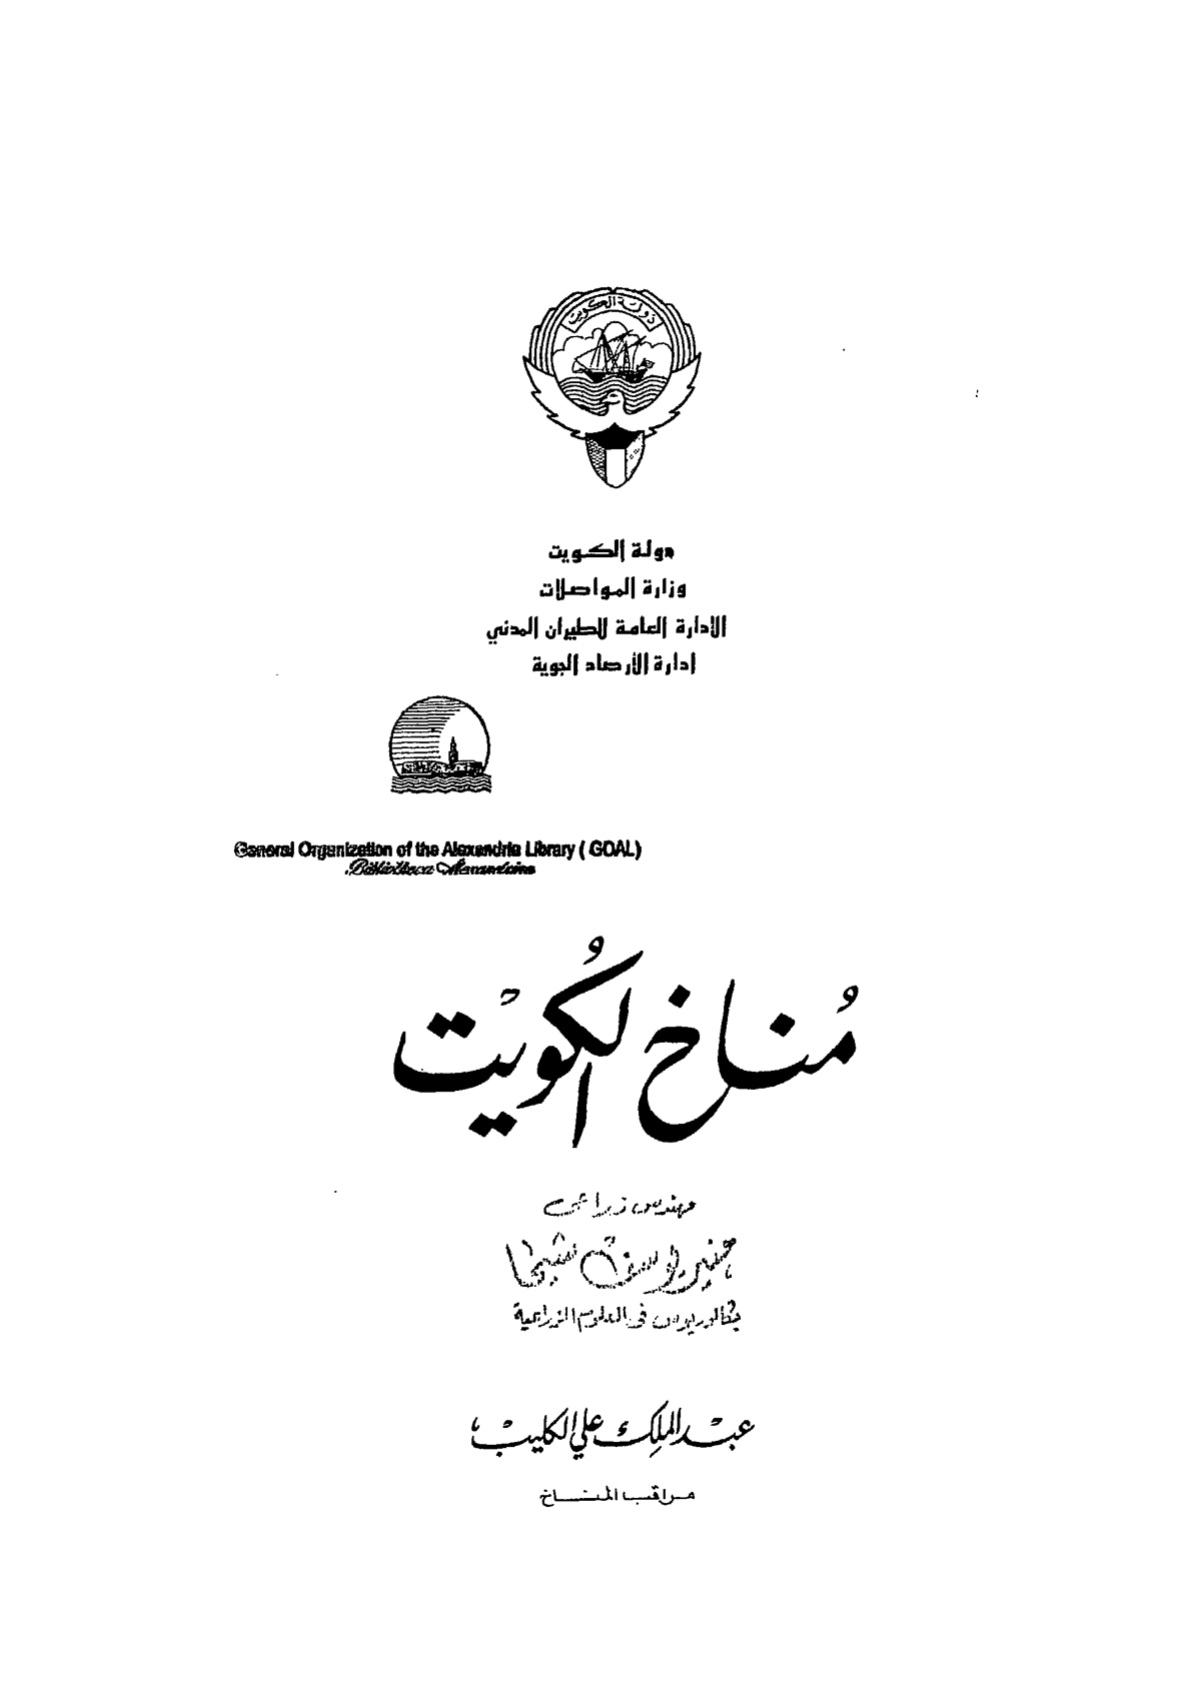 دولة الكويت
دولة الكويت
وزارة المواصلات
الإدارة العامة للطيران المدني
إدارة الأرصاد الجوية
General Organization of the Alexandria Library ( GOAL)
Bibliotheca Alexandrina
مُناخ الكُويْت
مهندس زراعى
منير يوسف شيحا
بكالوريوس فى العلوم الزراعية
عبْد الملك علي الكليبْ
مراقب المناخ